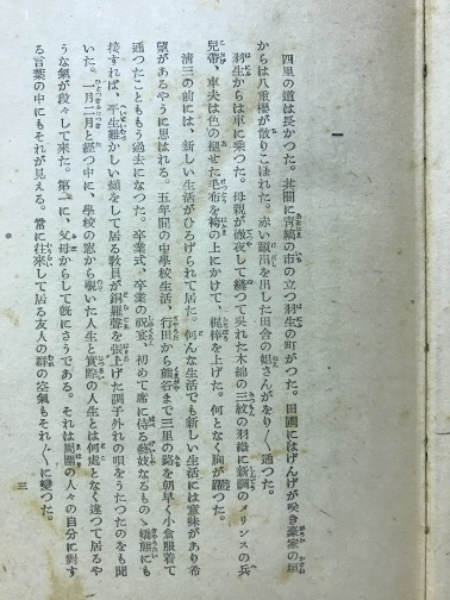 一
四里の道は長かつた。其間に青縞の市の立つ羽生の町がつた。田圃にはげんげが咲き豪家の垣
からは八重櫻が散りこぼれた。赤い蹴出を出した田舎の姐さんがをり〱通つた。
羽生からは車に乗つた。母親が徹夜して縫つて呉れた木綿の三紋の羽織に新調のメリンスの兵
兒帶、車夫は色の褪せた毛布を袴の上にかけて、梶棒を上げた。何となく胸が躍つた。
清三の前には、新しい生活がひろげられて居た。何んな生活でも新しい生活には意味があり希
望があるやうに思はれる。五年間の中學校生活、行田から熊谷まで三里の路を朝早く小倉服着て
通つたことももう過去になつた。卒業式、卒業の祝宴、初めて席に侍る藝妓なるものゝ嬌態にも
接すれば、平生難かしい顔をして居る教員が銅羅聲を張上げた調子外れの唄をうたつたのをも聞
いた。一月二月と經つ中に、學校の窓から覗いた人生と實際の人生とは何處となく違つて居るや
うな氣が段々して來た。第一に、父母からして既にさうである。それは周圍の人々の自分に對す
る言葉の中にもそれが見える。常に往來して居る友人の群の空氣もそれ〲に變つた。
三